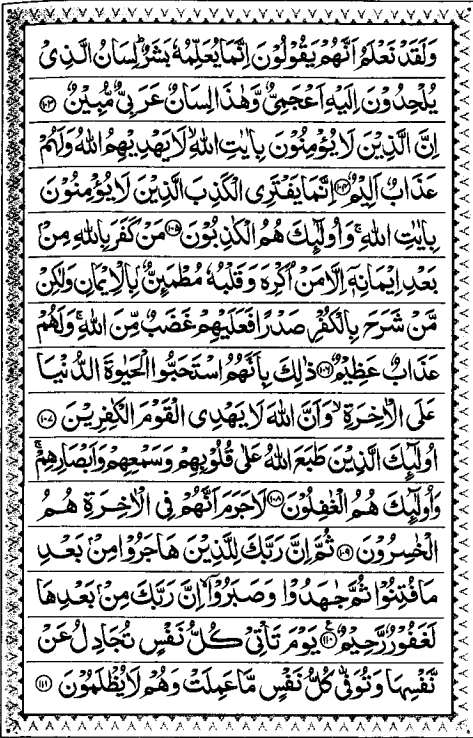 وَلَقَدۡ نَعۡلَمُ اَنَّهُمۡ يَقُوۡلُوۡنَ اِنَّمَا يُعَلِّمُهٗ بَشَرٌ‌ؕ لِسَانُ الَّذِىۡ
يُلۡحِدُوۡنَ اِلَيۡهِ اَعۡجَمِىٌّ وَّهٰذَا لِسَانٌ عَرَبِىٌّ مُّبِيۡنٌ ﴿۱۰۳﴾
اِنَّ الَّذِيۡنَ لَا يُؤۡمِنُوۡنَ بِاٰيٰتِ اللّٰهِۙ لَا يَهۡدِيۡهِمُ اللّٰهُ وَلَهُمۡ
عَذَابٌ اَلِيۡمٌ ﴿۱۰۴﴾ اِنَّمَا يَفۡتَرِى الۡكَذِبَ الَّذِيۡنَ لَا يُؤۡمِنُوۡنَ
بِاٰيٰتِ اللّٰهِ‌ۚ وَاُولٰۤٮِٕكَ هُمُ الۡكٰذِبُوۡنَ ﴿۱۰۵﴾ مَنۡ كَفَرَ بِاللّٰهِ مِنۡۢ
بَعۡدِ اِيۡمَانِهٖۤ اِلَّا مَنۡ اُكۡرِهَ وَقَلۡبُهٗ مُطۡمَٮِٕنٌّۢ بِالۡاِيۡمَانِ وَلٰكِنۡ
مَّنۡ شَرَحَ بِالۡكُفۡرِ صَدۡرًا فَعَلَيۡهِمۡ غَضَبٌ مِّنَ اللّٰهِ‌ۚ وَلَهُمۡ
عَذَابٌ عَظِيۡمٌ ﴿۱۰۶﴾ ذٰ لِكَ بِاَنَّهُمُ اسۡتَحَبُّوا الۡحَيٰوةَ الدُّنۡيَا
عَلَى الۡاٰخِرَةِ ۙ وَاَنَّ اللّٰهَ لَا يَهۡدِى الۡقَوۡمَ الۡكٰفِرِيۡنَ ﴿۱۰۷﴾
اُولٰۤٮِٕكَ الَّذِيۡنَ طَبَعَ اللّٰهُ عَلٰى قُلُوۡبِهِمۡ وَسَمۡعِهِمۡ وَاَبۡصَارِهِمۡ‌ۚ
وَاُولٰۤٮِٕكَ هُمُ الۡغٰفِلُوۡنَ ﴿۱۰۸﴾ لَا جَرَمَ اَنَّهُمۡ فِى الۡاٰخِرَةِ هُمُ
الۡخٰسِرُوۡنَ ﴿۱۰۹﴾ ثُمَّ اِنَّ رَبَّكَ لِلَّذِيۡنَ هَاجَرُوۡا مِنۡۢ بَعۡدِ
مَا فُتِنُوۡا ثُمَّ جٰهَدُوۡا وَصَبَرُوۡۤاۙ اِنَّ رَبَّكَ مِنۡۢ بَعۡدِهَا
لَغَفُوۡرٌ رَّحِيۡمٌ ﴿۱۱۰﴾ يَوۡمَ تَاۡتِىۡ كُلُّ نَفۡسٍ تُجَادِلُ عَنۡ
نَّفۡسِهَا وَتُوَفّٰى كُلُّ نَفۡسٍ مَّا عَمِلَتۡ وَهُمۡ لَا يُظۡلَمُوۡنَ ﴿۱۱۱﴾